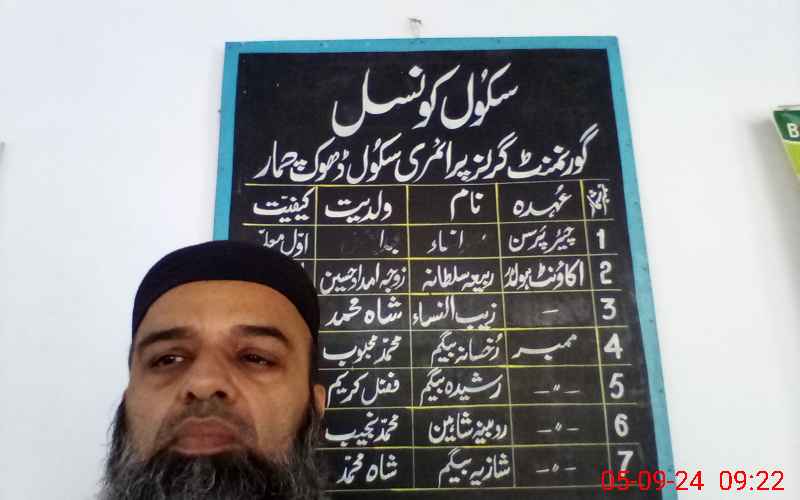 سکُول کونسل
گورنمنٹ گرلز پرائمری سکُول ڈھوک چمار
نمبر شمار عُہدہ نام ولدیت کیفیّت
1 چیئرپرسن اوّل
2 اکاؤنٹ ہولڈر ربیعہ سلطانہ زوجہ امداد حسین
3 - زیب النساء شاہ محمد
4 ممبر رُخسانہ بیگم محمّد محبوب
5 -〃- رشیدہ بیگم فضل کریم
6 -〃- روبینہ شاہین محمّد نجیب
7 -〃- شازیہ بیگم شاہ محمّد
B
05-09-24 09:22